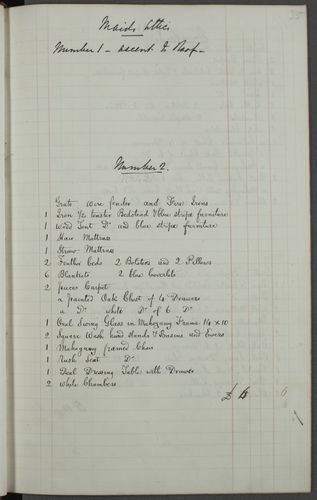 35
Maids Attic
Number 1 - ascent to Roof -
Number 2.
Grate wire fender and Fire Irons
1 Iron ½ tester Bedstead & blue stripe furniture
1 Wood Tent Do and blue stripe furniture
1 Hair Mattrass
1 Straw Mattrass
2 Feather beds 2 Bolsters and 2 Pillows
6 Blankets 2 blue Coverlets
2 pieces Carpet
a painted Oak Chest of 4 Drawers
a Do white Do of 6 Do
1 Oval Swing Glass in Mahogany Frame 14 x 10
2 Square Wash hand stands & Basins and Ewers
1 Mahogany framed Chair
1 Rush Seat Do
1 Deal Dressing Table with Drawer
2 White Chambers
£ 6